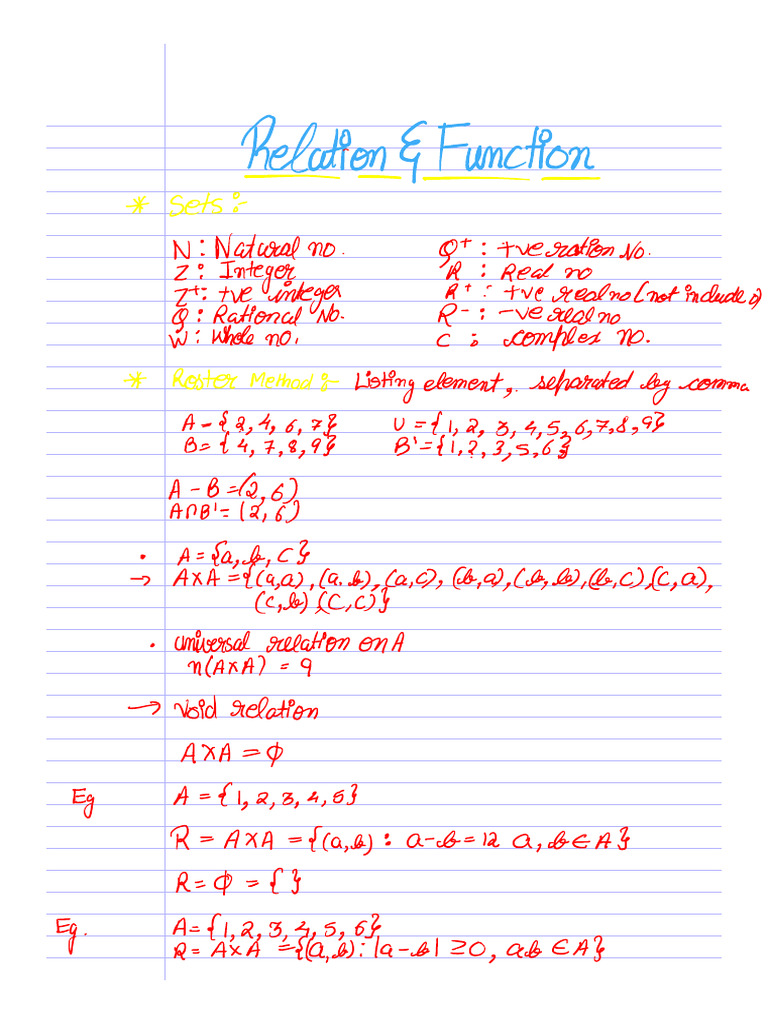 Relation & Function
* Sets :-
N : Natural no.
Z : Integer
Z+ : +ve integer
Q : Rational No.
W : Whole no.
Q+ : +ve ration No.
R : Real no
R+ : +ve real no (not include 0)
R- : -ve real no
C : complex no.
* Roster Method :- Listing element, separated by comma
A - { 2, 4, 6, 7}
B = { 4, 7, 8, 9}
U = { 1, 2, 3, 4, 5, 6, 7, 8, 9}
B' = {1, 2, 3, 5, 6}
A - B = (2, 6)
A∩B' = (2, 6)
• A = {a, b, c}
→ A×A = {(a,a), (a.b), (a,c), (b,a), (b,b), (b,c) (c,a),
(c,b) (c,c)}
• universal relation on A
n(A×A) = 9
→ Void relation
A×A = ϕ
Eg A = {1, 2, 3, 4, 5}
R = A×A = {(a,b) : a-b = 12 a, b ∈ A}
R = ϕ = { }
Eg. A = {1, 2, 3, 4, 5, 6}
R = A×A = {(a,b) : |a-b| ≥ 0, ab ∈ A}